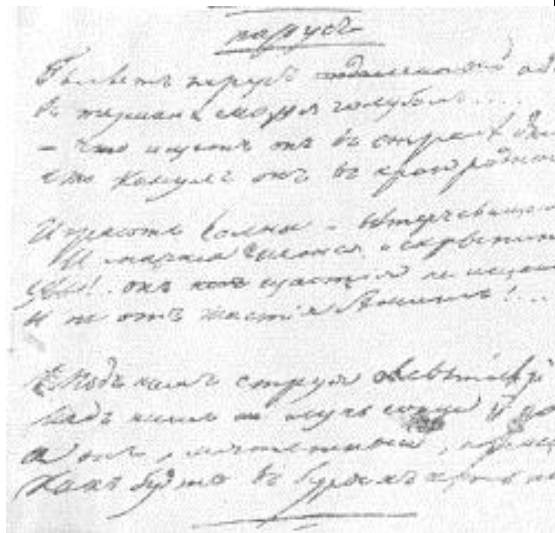 парусъ
Бѣлѣетъ парусъ отдаленной од
Въ туманѣ моря голубомъ....
– что ищетъ онъ въ странѣ да
что кинулъ онъ въ краю родно
Играютъ волны – вѣтеръ свище
И мачта гнется и скрыпит
Увы! онъ щастія не ищет
И не отъ щастія бѣжитъ!...
Подъ нимъ струя свѣтлѣй
Надъ нимъ лучь солнца
А онъ, мятежный, про
Какъ будто въ буряхъ